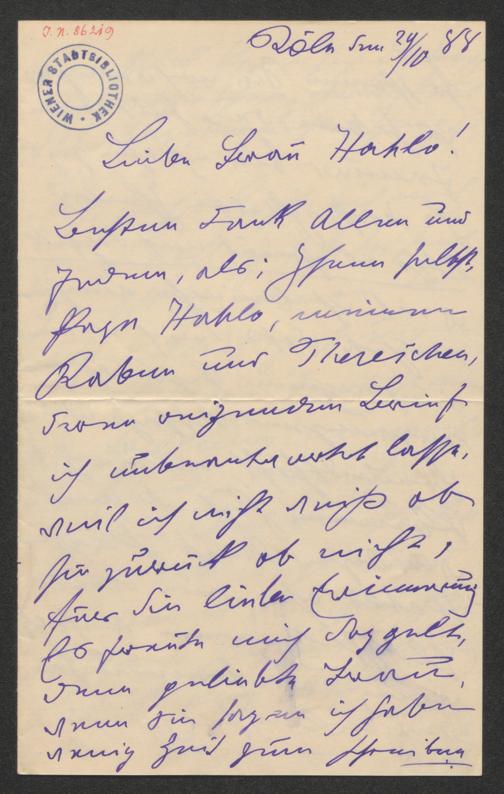 J. N. 86219
WIENER STADTBIBLIOTHEK
Köln den 24/10 88
Liebe Frau Hahlo!
Besten Dank Allen und
Jedem, als: Ihnen selbst,
Papa Hahlo, meinem
Raben und Thereschen,
deren reizenden Brief
ich unbeantwortet lasse,
weil ich nicht weiß ob
sie zurück ob nicht,
für die liebe Erinnerung
Es freute mich doppelt,
denn geliebte Frau,
wenn Sie sagen ich habe
wenig Zeit zum Schreiben